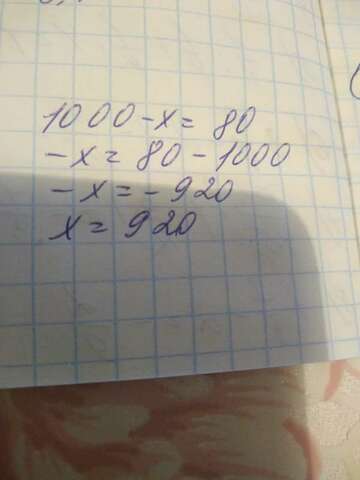 1000-x=80
-x=80-1000
-x=-920
x=920